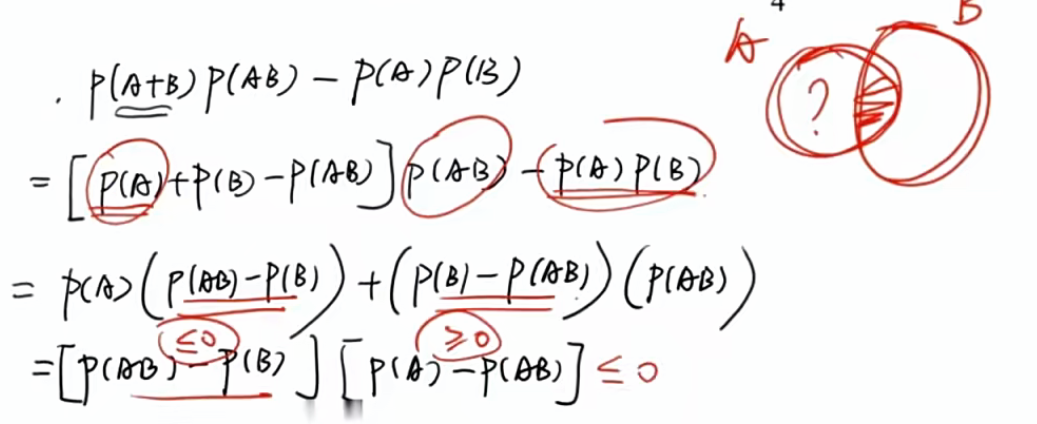 4
A B
?
. P(A+B)P(AB) - P(A)P(B)
= [P(A)+P(B)-P(AB)]P(AB) - P(A)P(B)
= P(A)(P(AB)-P(B))+(P(B)-P(AB))(P(AB))
≤0 ≥0
=[P(AB)-P(B)][P(A)-P(AB)] ≤ 0